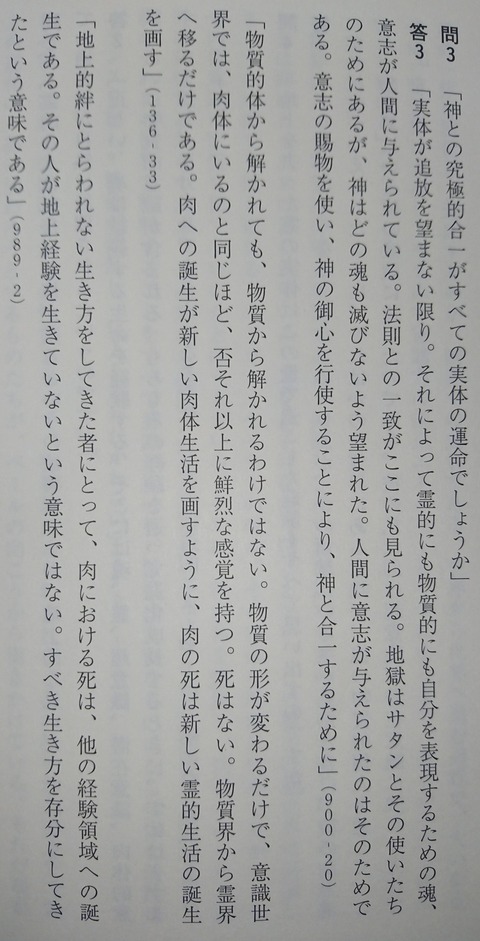 問3 「神との究極的合一がすべての実体の運命でしょうか」
答3 「実体が追放を望まない限り。それによって霊的にも物質的にも自分を表現するための魂、
意志が人間に与えられている。法則との一致がここにも見られる。地獄はサタンとその使いたち
のためにあるが、神はどの魂も滅びないよう望まれた。人間に意志が与えられたのはそのためで
ある。意志の賜物を使い、神の御心を行使することにより、神と合一するために」(900-20)
「物質的体から解かれても、物質から解かれるわけではない。物質の形が変わるだけで、意識世
界では、肉体にいるのと同じほど、否それ以上に鮮烈な感覚を持つ。死はない。物質界から霊界
へ移るだけである。肉への誕生が新しい肉体生活を画すように、肉の死は新しい霊的生活の誕生
を画す」(136-33)
「地上的絆にとらわれない生き方をしてきた者にとって、肉における死は、他の経験領域への誕
生である。その人が地上経験を生きていないという意味ではない。すべき生き方を存分にしてき
たという意味である」(989-2)